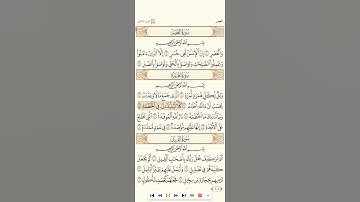 العصر
سُورَةُ العَصْرِ
بِسْمِ اللَّهِ الرَّحْمَٰنِ الرَّحِيمِ
وَالْعَصْرِ ۝١ إِنَّ الْإِنسَانَ لَفِي خُسْرٍ ۝٢ إِلَّا الَّذِينَ آمَنُوا
وَعَمِلُوا الصَّالِحَاتِ وَتَوَاصَوْا بِالْحَقِّ وَتَوَاصَوْا بِالصَّبْرِ ۝٣
سُورَةُ الهُمَزَةِ
بِسْمِ اللَّهِ الرَّحْمَٰنِ الرَّحِيمِ
وَيْلٌ لِّكُلِّ هُمَزَةٍ لُّمَزَةٍ ۝١ الَّذِي جَمَعَ مَالًا وَعَدَّدَهُ ۝٢
يَحْسَبُ أَنَّ مَالَهُ أَخْلَدَهُ ۝٣ كَلَّا لَيُنبَذَنَّ فِي الْحُطَمَةِ ۝٤
وَمَا أَدْرَاكَ مَا الْحُطَمَةُ ۝٥ نَارُ اللَّهِ الْمُوقَدَةُ ۝٦ الَّتِي تَطَّلِعُ
عَلَى الْأَفْئِدَةِ ۝٧ إِنَّهَا عَلَيْهِم مُّؤْصَدَةٌ ۝٨ فِي عَمَدٍ مُّمَدَّدَةٍ ۝٩
سُورَةُ الفِيلِ
بِسْمِ اللَّهِ الرَّحْمَٰنِ الرَّحِيمِ
أَلَمْ تَرَ كَيْفَ فَعَلَ رَبُّكَ بِأَصْحَابِ الْفِيلِ ۝١ أَلَمْ يَجْعَلْ
كَيْدَهُمْ فِي تَضْلِيلٍ ۝٢ وَأَرْسَلَ عَلَيْهِمْ طَيْرًا أَبَابِيلَ ۝٣
تَرْمِيهِم بِحِجَارَةٍ مِّن سِجِّيلٍ ۝٤ فَجَعَلَهُمْ كَعَصْفٍ مَّأْكُولٍ ۝٥